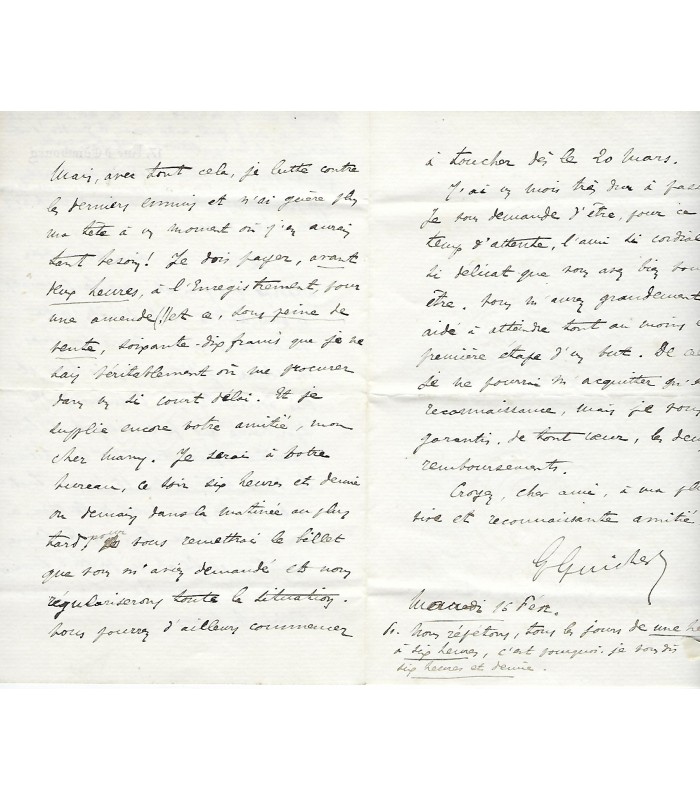 Mais, avec tout cela, je lutte contre
les derniers ennuis et n'ai guère plus
ma tête à un moment où j'en aurais
tant besoin! Je dois payer, avant
deux heures, à l'Enregistrement, pour
une amende (!) et ce, sous peine de
vente, soixante-dix francs que je ne
sais véritablement où me procurer
dans un si court délai. Et je
supplie encore votre amitié, mon
cher Many. Je serai à votre
bureau, ce soir six heures et demie
ou demain dans la matinée au plus
tard, vous remettrai le billet
que vous m'aviez demandé et nous
régulariserons toute la situation.
Vous pourrez d'ailleurs commencer
à toucher dès le 20 Mars.
J'ai un mois très dur à pass
Je vous demande d'être, pour ce
temps d'attente, l'ami si cordial
si délicat que vous avez bien vou
être. Vous m'aurez grandement
aidé à atteindre tout au moins
première étape d'un but. De ce
je ne pourrai m'acquitter qu'e
reconnaissance, mais je vous
garantis, de tout cœur, les deux
remboursements.
Croyez, cher ami, à ma plu
vive et reconnaissante amitié
G Guiches
16 Févr.
Nous répétons, tous les jours de une he
à six heures, c'est pourquoi je vous dis
six heures et demie.